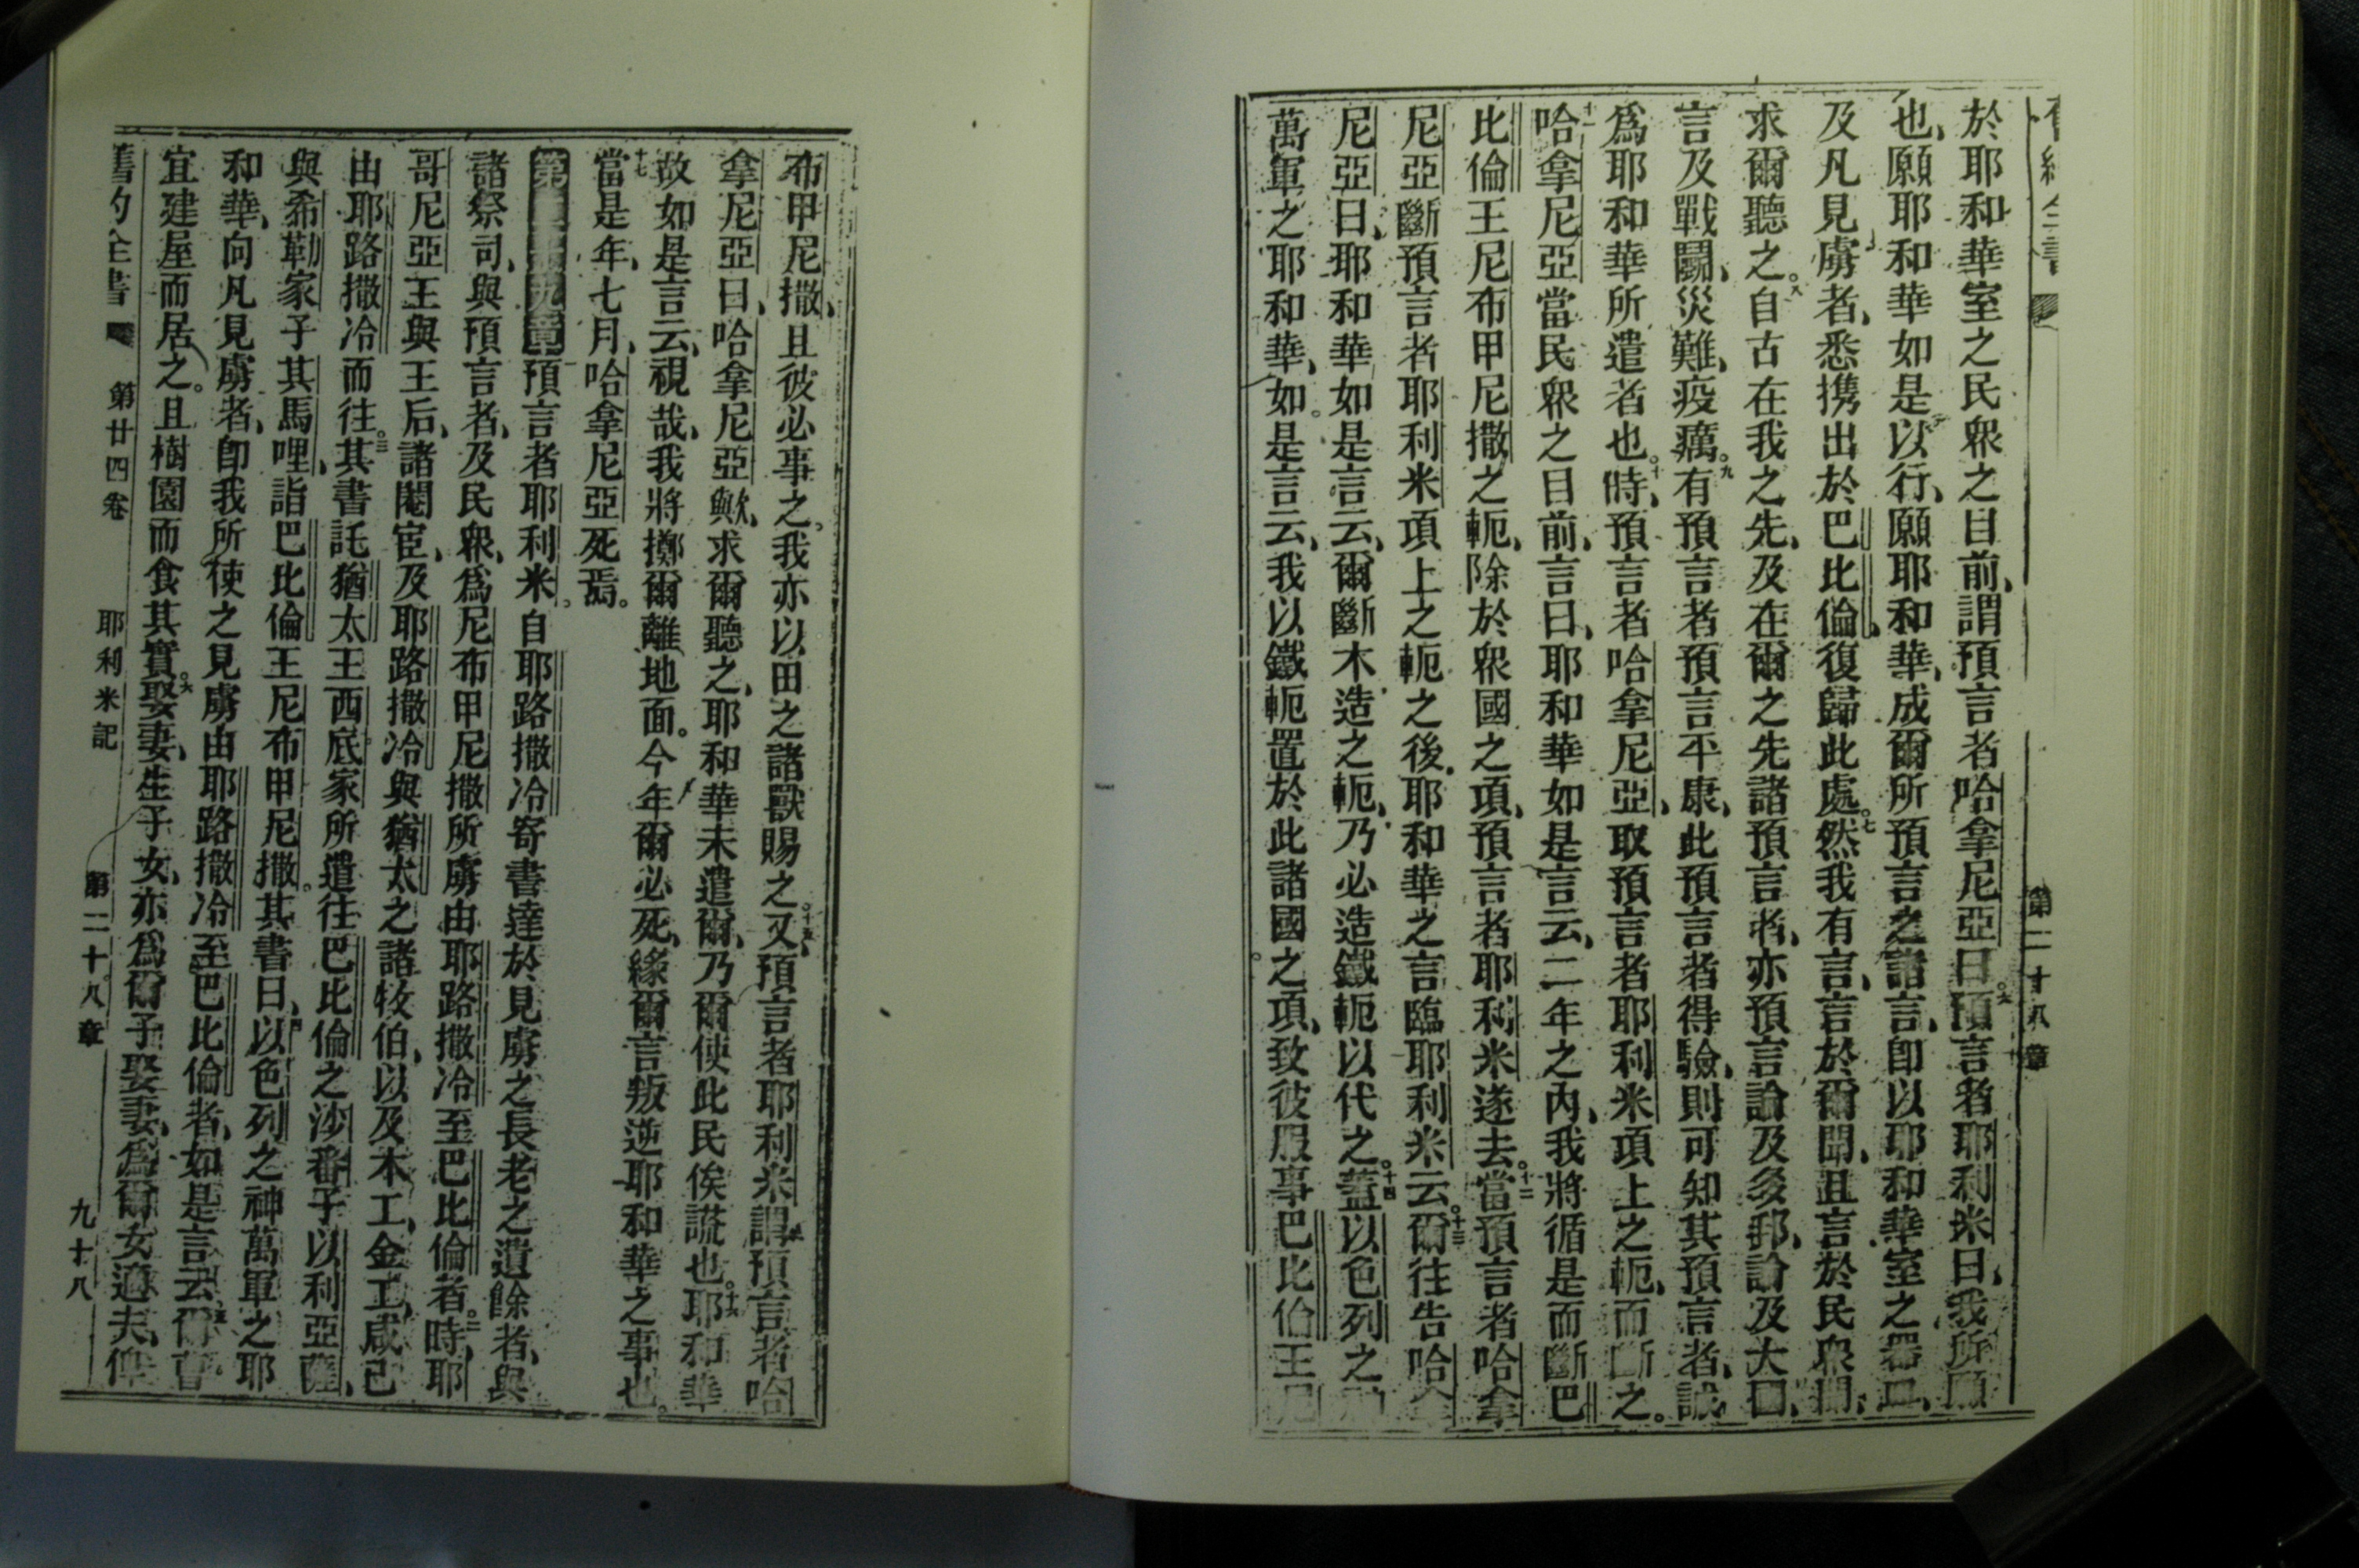 於耶和華室之民眾之目前、謂預言者哈拿尼亞曰。六預言者耶利米曰、我所願
也、願耶和華如是以行、願耶和華、成爾所預言之諸言、卽以耶和華室之器皿、
及凡見虜者、悉攜出於巴比倫、復歸此處。七然我有言、言於爾聞、且言於民眾聞、
求爾聽之。八自古在我之先、及在爾之先諸預言者、亦預言論及多邦、論及大國、
言及戰鬬、災難、疫癘。九有預言者預言平康、此預言者得驗、則可知其預言者、誠
爲耶和華所遣者也。十時、預言者哈拿尼亞、取預言者耶利米項上之軛、而斷之。
十一哈拿尼亞當民眾之目前、言曰、耶和華如是言云、二年之內、我將循是而斷巴
比倫王尼布甲尼撒之軛、除於眾國之項、預言者耶利米遂去。十二當預言者哈拿
尼亞斷預言者耶利米項上之軛之後、耶和華之言臨耶利米云。十三爾往告哈拿
尼亞曰、耶和華如是言云、爾斷木造之軛、乃必造鐵軛以代之。十四蓋以色列之神
萬軍之耶和華、如是言云、我以鐵軛置於此諸國之項、致彼服事巴比倫王尼
第二十八章
布甲尼撒、且彼必事之。我亦以田之諸獸賜之。十五又預言者耶利米謂預言者哈
拿尼亞曰、哈拿尼亞歟、求爾聽之、耶和華未遣爾、乃爾使此民俟謊也。十六耶和華
故如是言云、視哉、我將擲爾離地面。今年爾必死、緣爾言叛逆耶和華之事也。
十七當是年、七月、哈拿尼亞死焉。
第二十九章預言者耶利米。自耶路撒冷寄書達於見虜之長老之遺餘者、與
諸祭司、與預言者、及民眾、爲尼布甲尼撒所虜由耶路撒冷至巴比倫者。二時、耶
哥尼亞王與王后、諸閹宦、及耶路撒冷與猶太之諸牧伯、以及木工、金工、咸已
由耶路撒冷而往。三其書託猶太王西底家所遣往巴比倫之沙番子以利亞薩、
與希勒家子其馬哩、詣巴比倫王尼布甲尼撒。其書曰、四以色列之神萬軍之耶
和華、向凡見虜者、卽我所使之見虜由耶路撒冷至巴比倫者、如是言云、五爾曹
宜建屋而居之。且樹園而食其實。六娶妻、生子女、亦爲爾子娶妻、爲爾女適夫、俾
舊約全書 第廿四卷 耶利米記 第二十八章 九十八